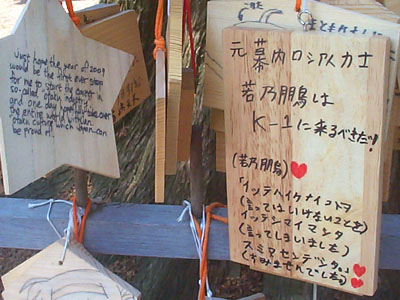 Just hope the year of 2009
would be the first ever step
for me to start the career in
so-called otaku industry.
and one day hopefully take over
the entire world with
otaku culture which japan can
be proud of.
元幕内ロシア人力士
若乃鵬は
K-1に来るべきだ!
(若乃鵬)
「イッテハイケナイコトヲ
(言ってはいけないことを)
イッテシマイマシタ
(言ってしまいました)
スミマセンデシタ。」
(すみませんでした)